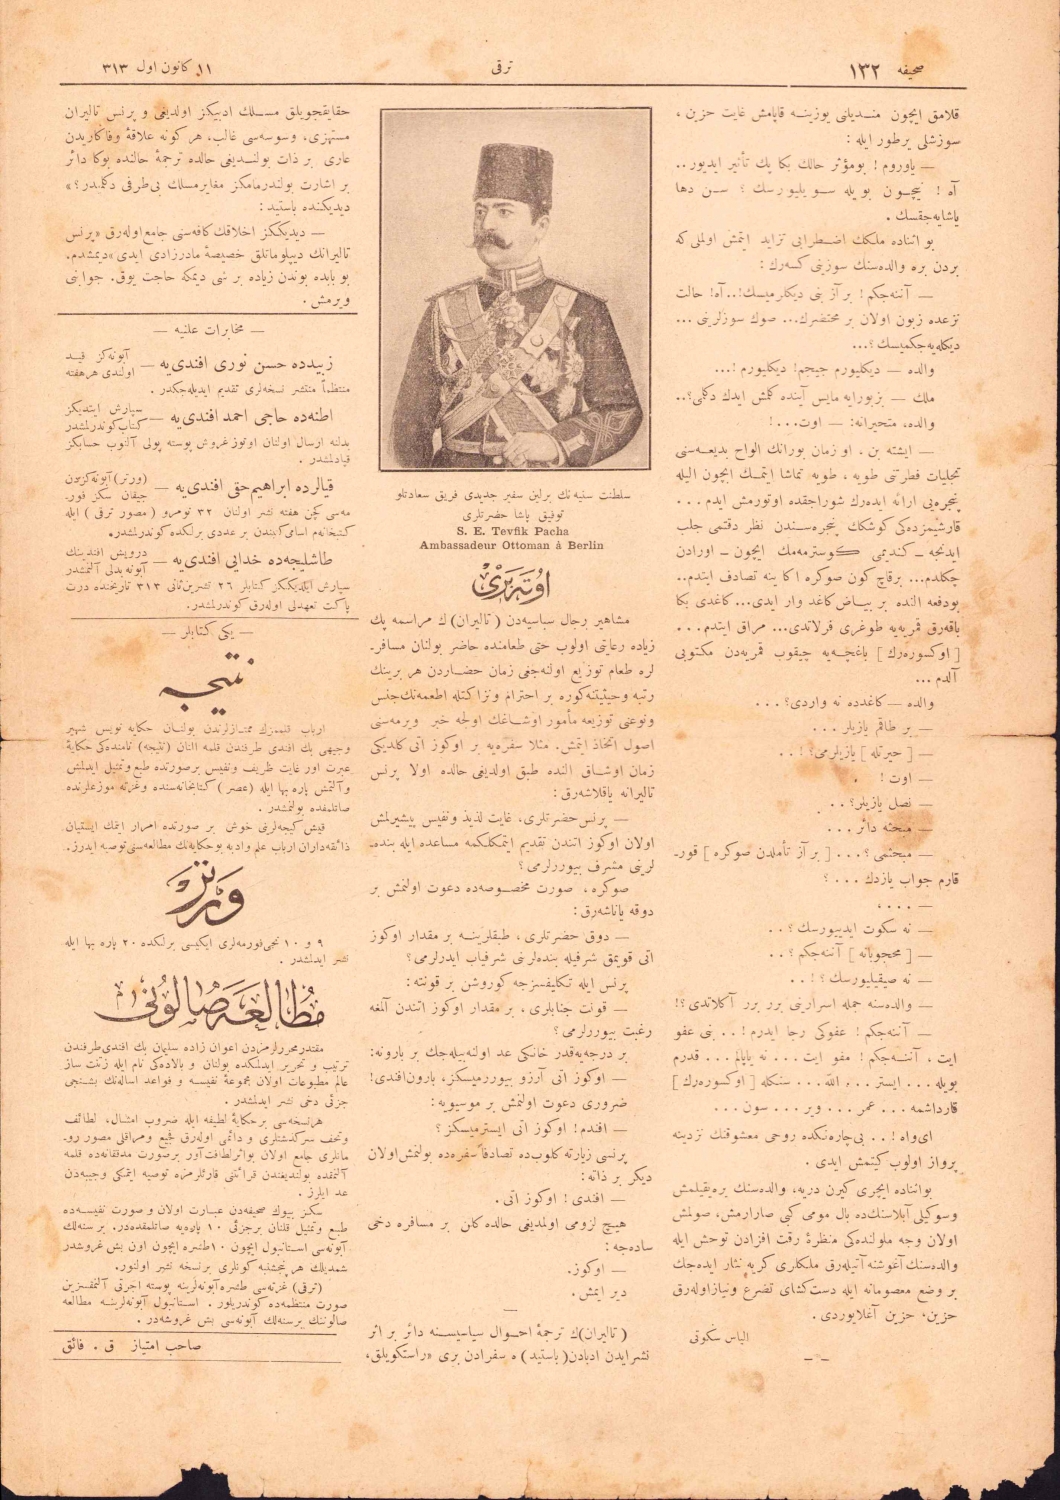 صحیفه ١٣٢
ترقی
١١ كانون اول ٣١٣
قلامق ایچون مندیلنی یوزینه قاپامش غایت حزین ،
سوزشلی برطور ایله :
— یاوروم ! بومؤثر حالك بكا پك تأثیر ایدیور..
آه ! نیچون بویله سویلیورسك ؟ سن دها
یاشایه‌جقسك .
بو اثناده ملكك اضطرابی تزاید ایتمش اولملی كه
بردن بره والده‌سنك سوزینی كسه‌رك :
— آننه‌جكم ! برآز بنی دیكلرمیسك !.. آه ! حالت
نزعده زبون اولان بر محتضرك... صوك سوزلرینی ...
دیكله‌یه‌جكمیسك ؟...
والده — دیكلیورم جیجم ! دیكلیورم !...
ملك — بزبورایه مایس آینده كلمش ایدك دكلمی؟..
والده، متحیرانه : — اوت...!
— ایشته بن . او زمان بورانك الواح بدیعه‌سنی
تجلیات فطرتی طویه ، طویه تماشا ایتمك ایچون الیله
پنجره‌یی ارائه ایده‌رك شوراجقده اوتورمش ایدم . . .
قارشیمزده‌كی كوشكك پنجره‌سندن نظر دقتمی جلب
ایدنجه — كندیمی كوسترمه‌مك ایچون — اورادن
چكلدم... برقاچ كون صوكره اكا ینه تصادف ایتدم..
بودفعه النده بر بیاض كاغد وار ایدی... كاغدی بكا
باقه‌رق قریه‌یه طوغری فرلاتدی... مراق ایتدم . . .
[ اوكسوره‌رك ] باغچه‌یه چیقوب قریه‌دن مكتوبی
آلدم ...
والده — كاغدده نه واردی؟ . . .
— بر طاقم یازیلر . . .
— [ حیرتله ] یازیلرمی؟ ! . .
— اوت !
— نصل یازیلر؟ . .
— مبحثه دائر . . .
— مبحثمی ؟ . . . [ برآز تأملدن صوكره ] قور-
قارم جواب یازدك . . . ؟
— . . . .
— نه سكوت ایدییورسك ؟ . .
— [ محجوبانه ] آننه‌جكم ؟ . .
— نه صیقیلیورسك ؟ ! . .
— والده‌سنه جمله اسرارینی برر برر آكلاتدی ؟!
— آننه‌جكم ! عفوكی رجا ایدرم ! . . بنی عفو
ایت ، آننه‌جكم ! عفو ایت . . . نه یاپالم . . . قدرم
بویله . . . ایستر . . . الله . . . سنكله [ اوكسوره‌رك ]
قارداشمه . . . عمر . . . ویر . . . سون . . .
ای‌واه ! . . بی‌چاره‌نكده روحی معشوقنك نزدینه
پرواز اولوب كیتمش ایدی .
بواثناده ایچری كیرن دریه، والده‌سنك بره‌یقیلمش
وسوكیلی آبلاسنكده بال مومی كبی صارارمش، صولمش
اولان وجه ملولنده‌كی منظرهٔ رقت افزادن توحش ایله
والده‌سنك آغوشنه آتیله‌رق ملكلری كریه نثار ایده‌جك
بر وضع معصومانه ایله دست‌كشای تضرع ونیازاوله‌رق
حزین، حزین آغلایوردی .
الیاس سكوتی
سلطنت سنیه نك برلین سفیر جدیدی فریق سعادتلو
توفیق پاشا حضرتلری
S. E. Tevfik Pacha
Ambassadeur Ottoman à Berlin
اوته بری
مشاهیر رجال سیاسیه‌دن ( تالیران ) ك مراسمه پك
زیاده رعایتی اولوب حتی طعامنده حاضر بولنان مسافر-
لره طعام توزیع اولنه‌جغی زمان حضاردن هر برینك
رتبه وحیثیتنه‌كوره بر احترام ونزاكتله اطعمه‌نك‌جنس
ونوعنی توزیعه مأمور اوشاغك اولجه خبر ویرمه‌سنی
اصول اتخاذ ایتمش. مثلا سفره‌یه بر اوكوز اتی كلدیكی
زمان اوشاق النده طبق اولدیغی حالده اولا پرنس
تالیرانه یاقلاشه‌رق :
— پرنس حضرتلری، غایت لذیذ ونفیس پیشیرلمش
اولان اوكوز اتندن تقدیم ایتمكلكمه مساعده ایله بنده-
لرینی مشرف بیوررلرمی ؟
صوكره ، صورت مخصوصه‌ده دعوت اولنمش بر
دوقه یاناشه‌رق :
— دوق حضرتلری ، طبقلرینه بر مقدار اوكوز
اتی قویمق شرفیله بنده‌لرینی شرفیاب ایدرلرمی ؟
پرنس ایله تكلیفسزجه كوروشن بر قونته :
— قونت جنابلری ، بر مقدار اوكوز اتندن آلمغه
رغبت بیوررلرمی ؟
بر درجه‌یه‌قدر خانكی عد اولنه‌بیله‌جك بر بارونه :
— اوكوز اتی آرزو بیوررمیسكز، بارون‌افندی !
ضروری دعوت اولنمش بر موسیویه :
— افندم ! اوكوز اتی ایسترمیسكز ؟
پرنسی زیارته كلوب‌ده تصادفا سفره‌ده بولنمش‌اولان
دیكر بر ذاته :
— افندی ! اوكوز اتی .
هیچ لزومی اولمدیغی حالده كلن بر مسافره دخی
ساده‌جه :
— اوكوز.
دیر ایمش .
( تالیران)ك ترجمهٔ احوال سیاسیسنه دائر بر اثر
نشرایدن ادبادن ( باستید ) ه سفرادن بری «راستكویلق،
حقایقجویلق مسلك ادبیكز اولدیغی و پرنس تالیران
مستهزی، وسوسه‌سی غالب، هر كونه علاقهٔ وفاكاریدن
عاری بر ذات بولندیغی حالده ترجمهٔ حالنده بوكا دائر
بر اشارت بولندرمامكز مغایرمسلك بی‌طرفی دكلمیدر ؟»
دیدیكنده باستید :
— دیدیككز اخلاقك كافه‌سنی جامع اوله‌رق «پرنس
تالیرانك دیپلوماتلق خصیصهٔ مادرزادی ایدی» دیمشدم.
بو بابده بوندن زیاده بر شی دیمكه حاجت یوق. جوابنی
ویرمش .
— مخابرات علنیه —
زبیدده حسن نوری افندی‌یه — آبونه‌كز قید
اولندی هرهفته
منتظماً منتشر نسخه‌لری تقدیم ایدیله‌جكدر .
اطنه‌ده حاجی احمد افندی‌یه — سپارش ایتدیكز
كتاب‌كوندرلمشدر
بدلنه ارسال اولنان اوتوز غروش پوسته پولی آلنوب حسابكز
قپادلمشدر .
قیالرده ابراهیم حقی افندی‌یه — (ورتر) آبونه‌كزدن
جیقان سكز فور-
مه‌سی كچن هفته نشر اولنان ٣٢ نومرو ( مصور ترقی ) ایله
كتبخانه‌م اسامی‌كتبندن بر عددی برلكده كوندرلمشدر.
طاشلیجه‌ده خدایی افندی‌یه — درویش افندینك
آبونه‌بدلی آلنمشدر
سپارش ایلدیككز كتابلر ٢٦ تشرین‌ثانی ٣١٣ تاریخنده درت
پاكت تعهدلی اوله‌رق كوندرلمشدر.
— یكی كتابلر —
نتیجه
ارباب قلممزك ممتازلرندن بولنان حكایه نویس شهیر
وجیهی بك افندی طرفندن قلمه النان (نتیجه) نامنده‌كی حكایهٔ
عبرت اور غایت ظریف ونفیس برصورتده طبع وتمثیل ایدلمش
وآلتمش پاره بها ایله (عصر) كتابخانه‌سنده وغزته موزعلرنده
صاتلمقده بولنمشدر .
قیش كیجه‌لرینی خوش بر صورتده امرار ایتمك ایستیان
ذائقه‌داران ارباب علم وادبه بوحكایه‌نك مطالعه‌سنی‌توصیه ایدرز.
ورتر
٩ و ١٠ نجی‌فورمه‌لری ایكیسی برلكده ٢٠ پاره بها ایله
نشر ایدلمشدر .
مطالعه صالونی
مقتدرمحررلرمزدن اعوان زاده سلیمان بك افندی‌طرفندن
ترتیب و تحریر ایدلمكده بولنان و بالاده‌كی نام ایله زینت ساز
عالم مطبوعات اولان مجموعهٔ نفیسه و فواعد اساله‌نك بشنجی
جزئی دخی نشر ایدلمشدر .
هرنسخه‌سی برحكایهٔ لطیفه ایله ضروب امثال، لطائف
وتحف سركذشتلری و دائمی اوله‌رق فجیع ومراقلی مصور رو-
مانلری جامع اولان بواثرلطافت‌آور برصورت مدققانه‌ده قلمه
آلنمقده بولندیغندن قرائتنی قارئلرمزه توصیه ایتمكی وجیبه‌دن
عد ایلرز .
سكز بیوك صحیفه‌دن عبارت اولان و صورت نفیسه‌ده
طبع وتمثیل قلنان برجزئی ١٠ پاره‌یه صاتلمقده‌در. برسنه‌لك
آبونه‌سی استانبول ایچون ١٠ طشره ایچون اون بش غروشدر
شمدیلك هر پنجشنبه كونلری برنسخه نشر اولنور.
(ترقی) غزته‌سی طشره آبونه‌لرینه پوسته اجرتی آلنمقسزین
صورت منتظمه‌ده كوندریلور . استانبول آبونه‌لرینه مطالعه
صالوننك برسنه‌لك آبونه‌سی بش غروشه‌در .
صاحب امتیاز ق . فائق